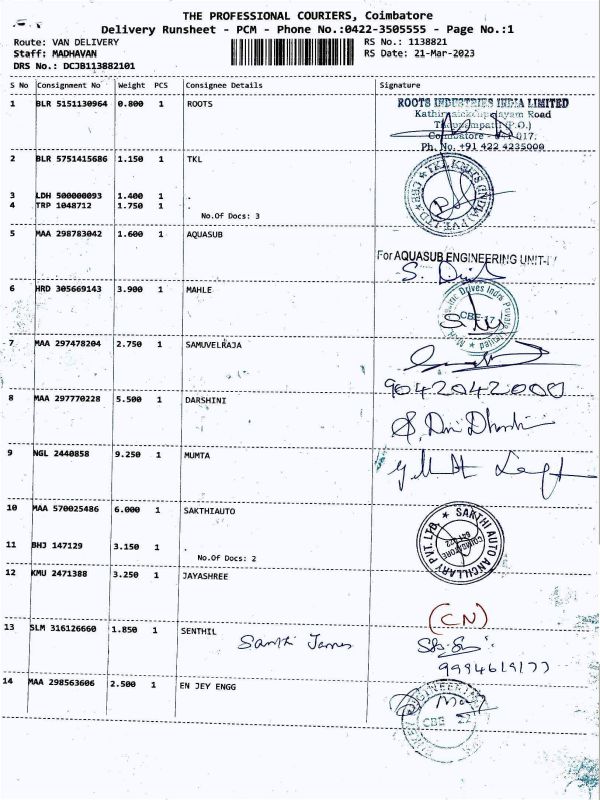 THE PROFESSIONAL COURIERS, Coimbatore
Delivery Runsheet - PCM - Phone No.:0422-3505555 - Page No.:1
Route: VAN DELIVERY
RS No.: 1138821
Staff: MADHAVAN
RS Date: 21-Mar-2023
DRS No.: DCJB113882101
S No Consignment No Weight PCS Consignee Details Signature
1 BLR 5151130964 0.800 1 ROOTS
ROOTS INDUSTRIES INDIA LIMITED
Road
Coimbatore 017.
Ph. No. +91 422 4235000
2 BLR 5751415686 1.150 1 TKL
3 LDH 500000093 1.400 1 .
4 TRP 1048712 1.750 1 .
No.Of Docs: 3
5 MAA 298783042 1.600 1 AQUASUB
For AQUASUB ENGINEERING UNIT-IV
6 HRD 305669143 3.900 1 MAHLE
Drives India Private Limited
CBE-17
7 MAA 297478204 2.750 1 SAMUVELRAJA
9042042000
8 MAA 297770228 5.500 1 DARSHINI
9 NGL 2440858 9.250 1 MUMTA
10 MAA 570025486 6.000 1 SAKTHIAUTO
SAKTHI AUTO ANCILLARY PVT. LTD.
COIMBATORE
11 BHJ 147129 3.150 1 .
No.Of Docs: 2
12 KMU 2471388 3.250 1 JAYASHREE
(CN)
13 SLM 316126660 1.850 1 SENTHIL
14 MAA 298563606 2.500 1 EN JEY ENGG
CBE